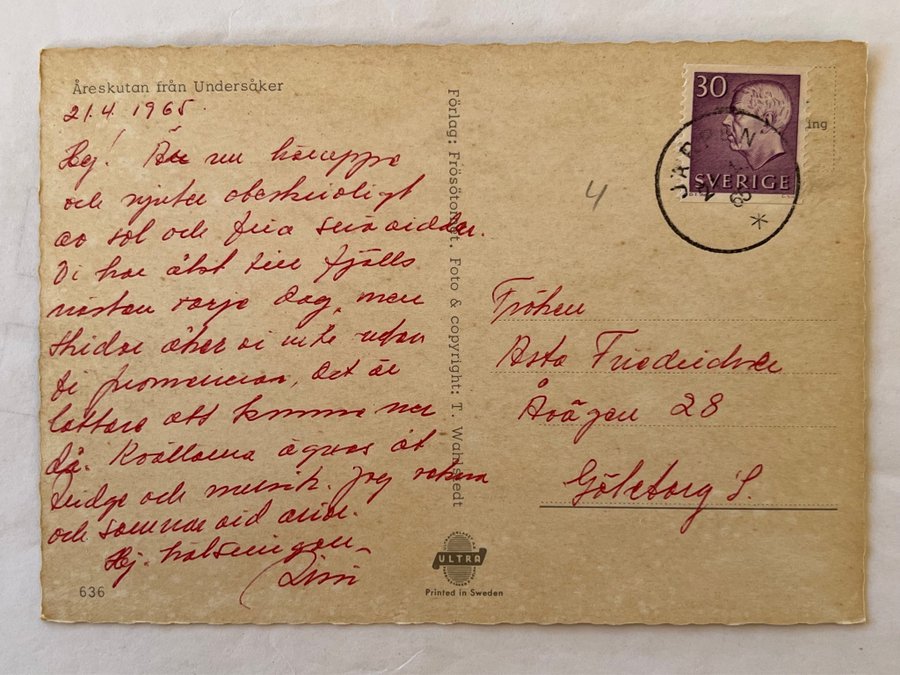 Åreskutan från Undersåker
21.4. 1965.
Hej! Är nu häruppe
och njuter obeskrivligt
av sol och fina
Vi har åkt till fjälls
nästan varje dag, men
skidor åker vi inte utan
promenerar, det är
lättare att komma ner
då. Kvällarna ägnas åt
bridge och musik. Jag
och somnar vid
Hej, hälsningar
636
Förlag: Frösötornet. Foto & copyright: T. Wahlstedt
ULTRA
Printed in Sweden
30
SVERIGE
JÄRPEN
65
ing
4
Fröken
Asta
Åvägen 28
Göteborg S.